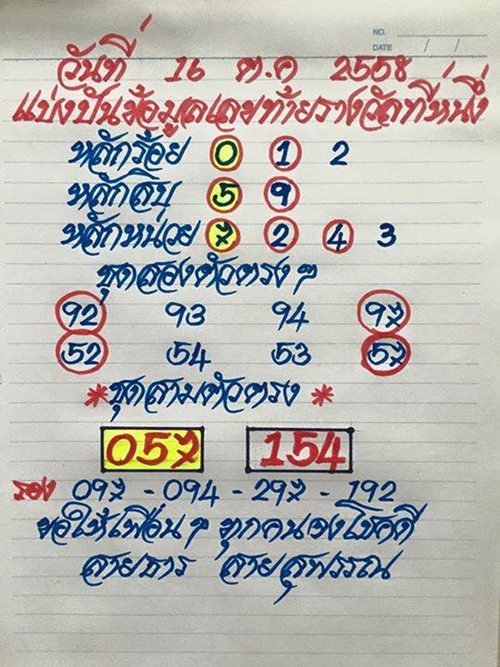 NO.
DATE / /
วันที่ 16 ต.ค 2558
แบ่งปันข้อมูลเลขท้ายรางวัลที่หนึ่ง
หลักร้อย 0 1 2
หลักสิบ 5 9
หลักหน่วย 7 2 4 3
ชุดสองตัวตรง ๆ
92 93 94 97
52 54 53 57
*ชุดสามตัวตรง *
057 154
รอง 097 - 094 - 297 - 192
ขอให้เพื่อน ๆ ทุกคนจงโชคดี
สายธาร สายสุพรรณ